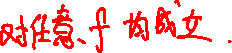 对任意 f 均成立.